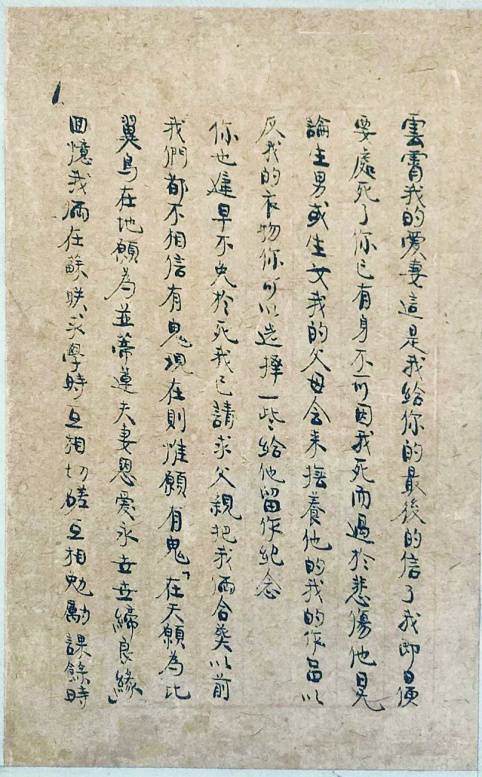 雲霄我的愛妻這是我給你的最後的信了我即日便
要處死了你已有身不可因我死而過於悲傷他日无
論生男或生女我的父母会来撫養他的我的作品以
及我的衣物你可以选擇一些給他留作紀念
你也遲早不免於死我已請求父親把我俩合葬以前
我們都不相信有鬼現在則惟願有鬼「在天願為比
翼鳥在地願為並蒂蓮夫妻恩爱永世世締良緣」
回憶我俩在蘇联求學時互相切磋互相勉勵課餘時